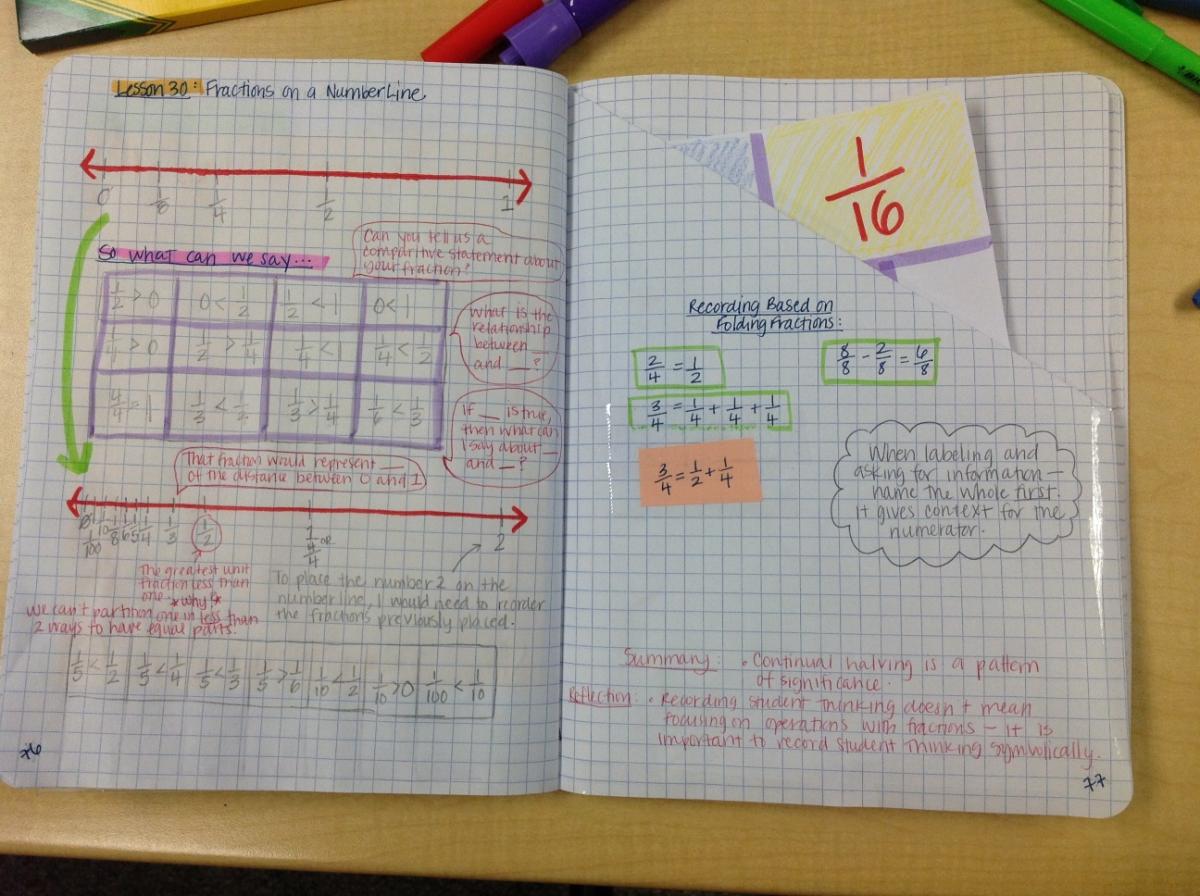 Lesson 30: Fractions on a Number Line
0 1/8 1/4 1/2 1
So what can we say...
Can you tell us a
comparitive statement about
your fraction?
1/2 > 0 0 < 1/2 1/2 < 1 0 < 1
1/4 > 0 1/2 > 1/4 1/4 < 1 1/4 < 1/2
4/4 = 1 1/3 < 1/2 1/3 > 1/4 1/6 < 1/3
What is the
relationship
between __
and __?
If __ is true,
then what can
I say about __
and __?
That fraction would represent __
of the distance between 0 and 1
0 1/100 1/10 1/8 1/6 1/5 1/4 1/3 1/2 1 or 4/4 2
The greatest unit
fraction less than
one. *why?*
We can't partition one in less than
2 ways to have equal parts.
To place the number 2 on the
number line, I would need to reorder
the fractions previously placed.
1/5 < 1/2 1/5 < 1/4 1/5 < 1/3 1/5 > 1/6 1/10 < 1/2 1/10 > 0 1/100 < 1/10
76
1/16
Recording Based on
Folding Fractions:
2/4 = 1/2
8/8 - 2/8 = 6/8
3/4 = 1/4 + 1/4 + 1/4
3/4 = 1/2 + 1/4
When labeling and
asking for information –
name the whole first.
It gives context for the
numerator.
Summary: • Continual halving is a pattern
of significance.
Reflection: • Recording student thinking doesn't mean
focusing on operations with fractions – it is
important to record student thinking symbolically.
77